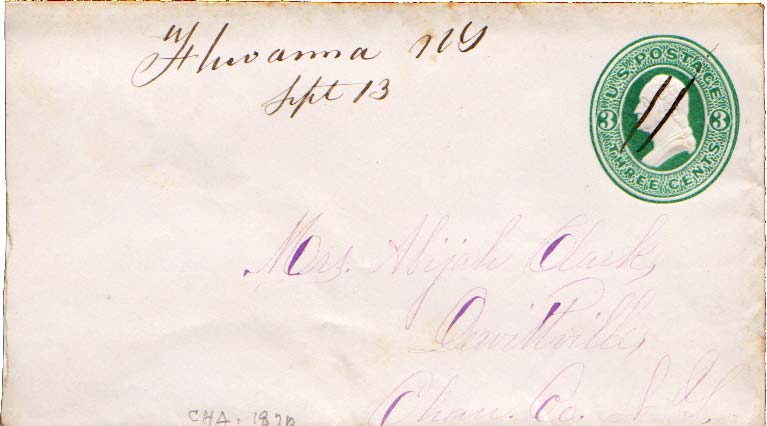 Fluvanna NY
Sept 13
U.S. POSTAGE
3 3
THREE CENTS
Mrs. Abijah Clark,
Dewittville,
Chau. Co. N.Y.
CHA. 1870